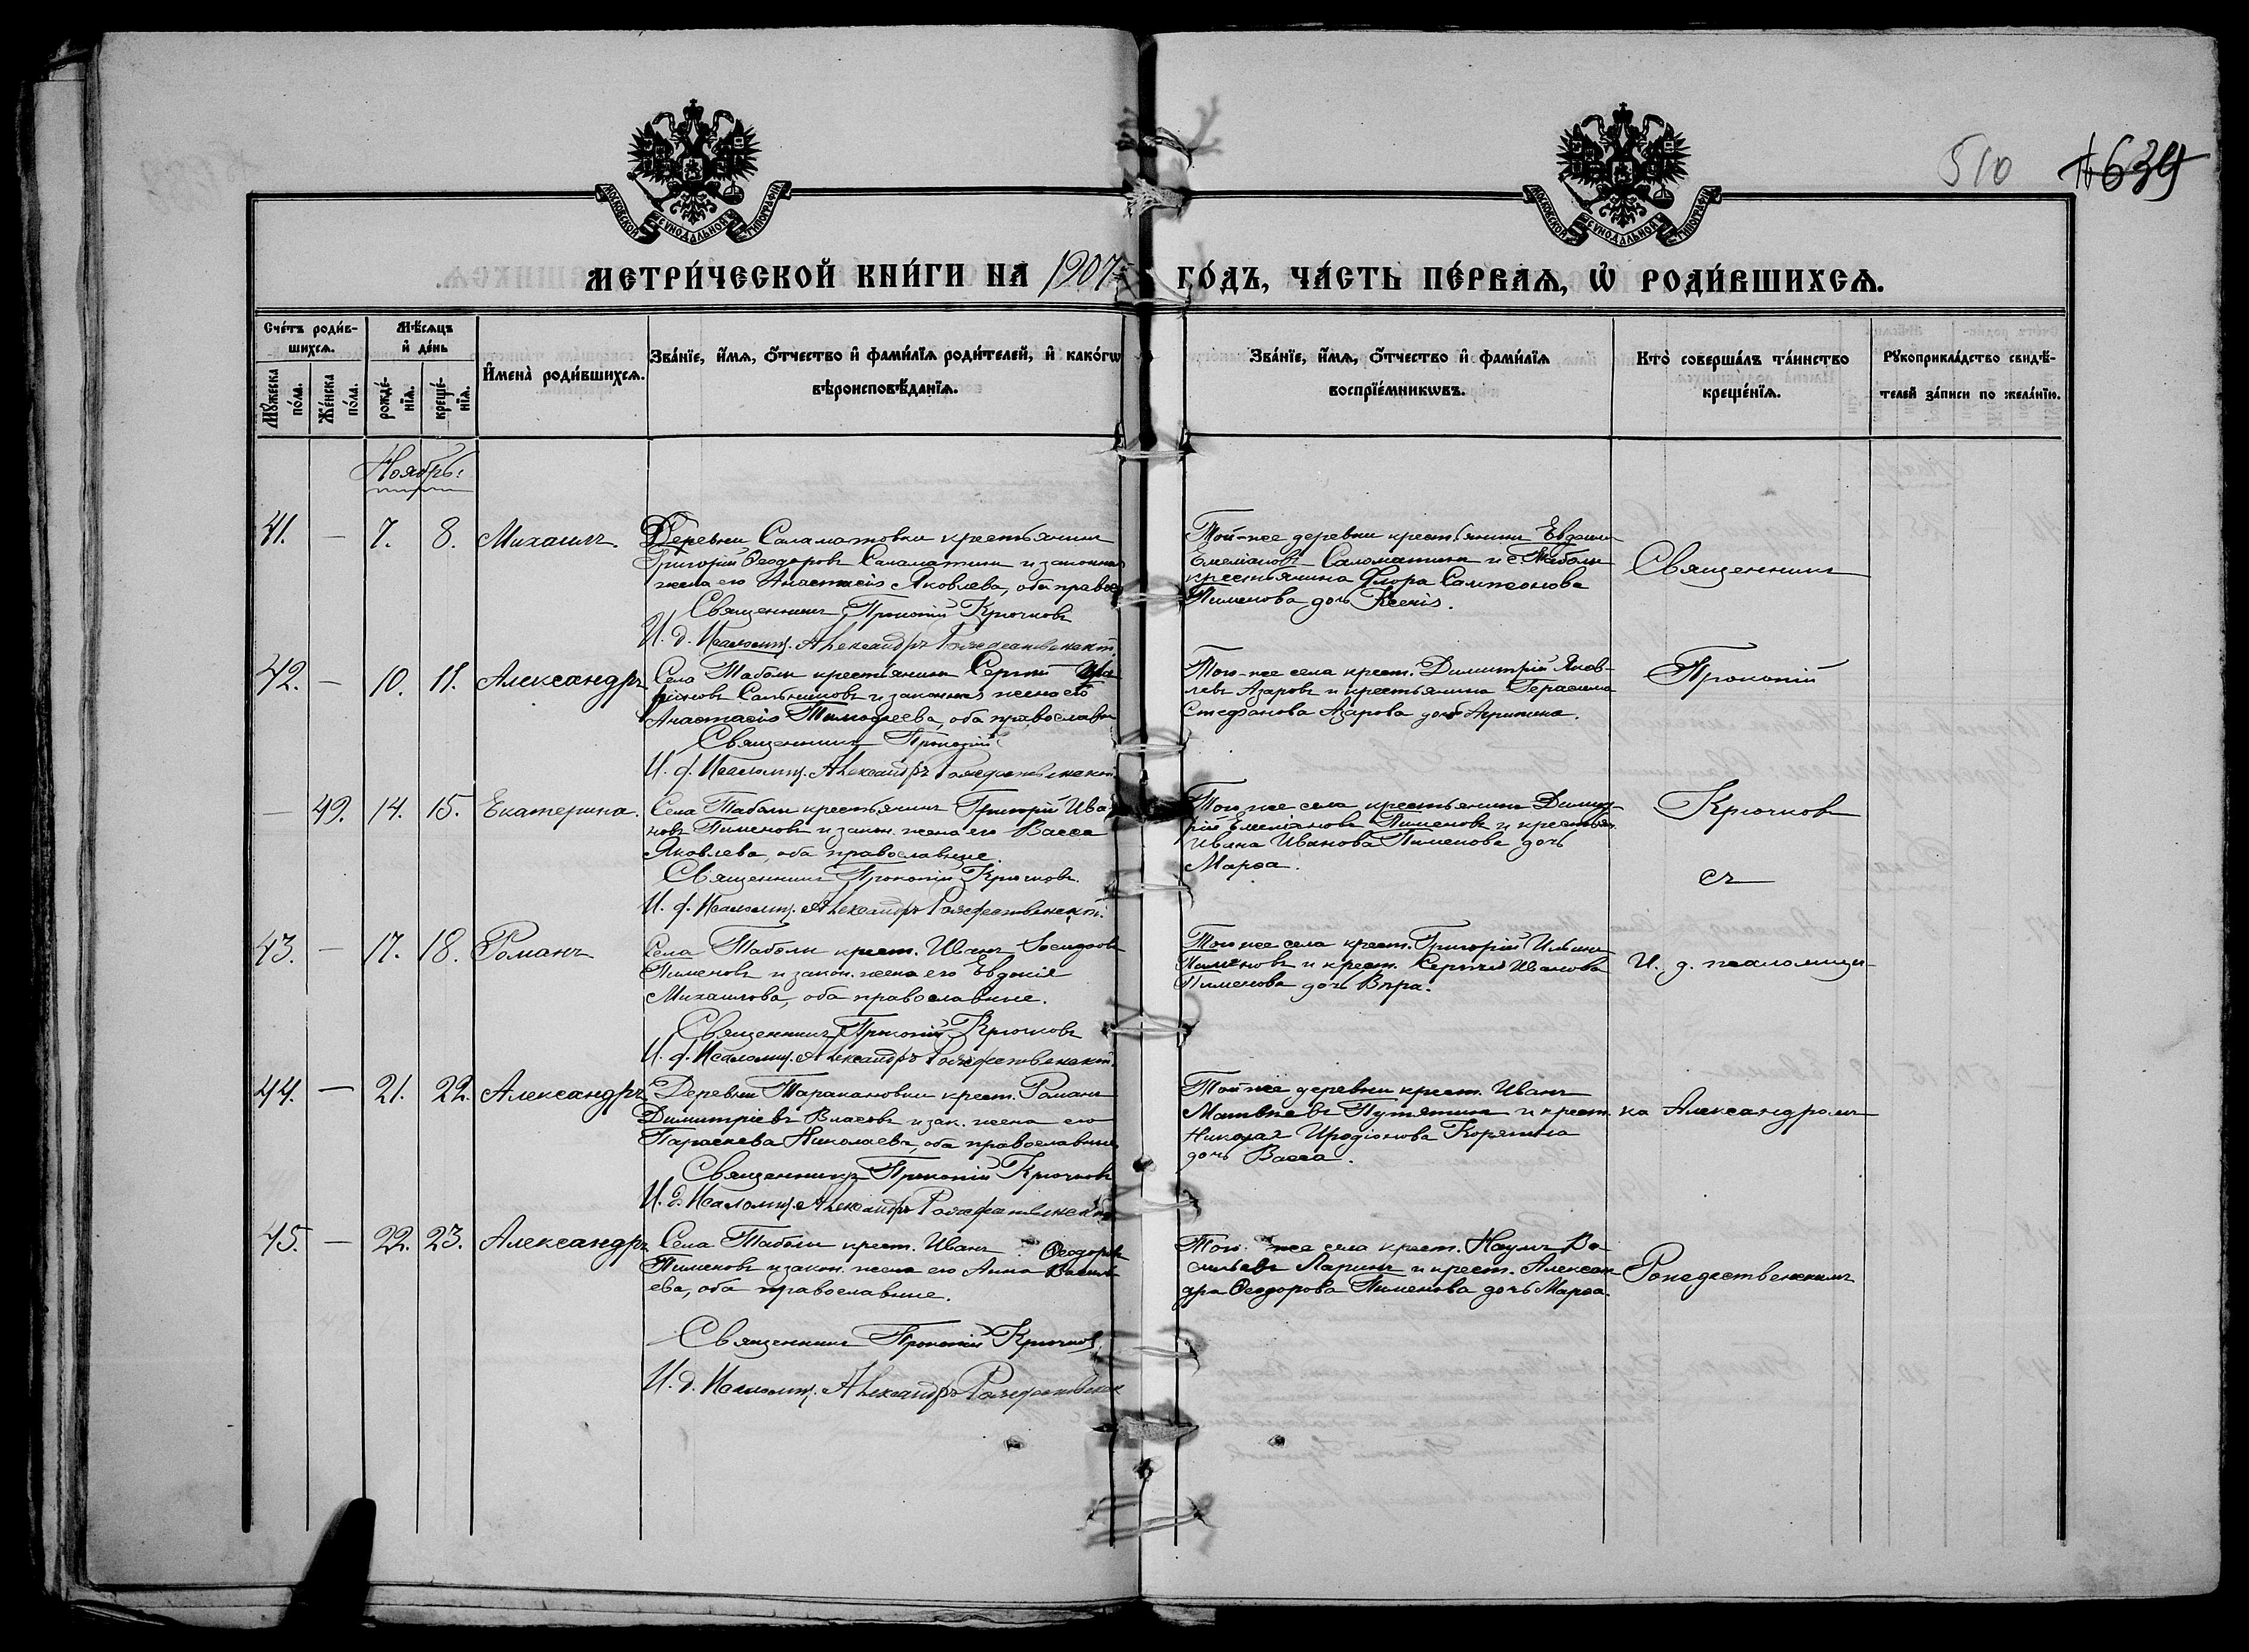 510 1639
МОСКОВСКОЙ СѴНОДАЛЬНОЙ ТИПОГРАФІИ
МОСКОВСКОЙ СѴНОДАЛЬНОЙ ТИПОГРАФІИ
МЕТРИ́ЧЕСКОЙ КНИ́ГИ НА 1907 ГО́ДЪ, ЧА́СТЬ ПЕ́РВАѦ, Ѡ҆ РОДИ́ВШИХСѦ.
Сче́тъ роди́в-
шихсѧ.
Мꙋ́жеска по́ла.
Же́нска по́ла.
Мѣ́сѧцъ и҆ де́нь
рожде́-нїѧ.
креще́-нїѧ.
И҆мена̀ роди́вшихсѧ.
Зва́нїе, и҆́мѧ, ѻ҆́тчество и҆ фами́лїѧ роди́телей, и҆ како́гѡ
вѣроисповѣ́данїѧ.
Зва́нїе, и҆́мѧ, ѻ҆́тчество и҆ фами́лїѧ
воспрїе́мникѡвъ.
Кто̀ соверша́лъ та́инство
креще́нїѧ.
Рꙋкоприкла́дство свидѣ́-
телей за́писи по жела́нїю.
Ноябрь:
41. — 7. 8. Михаилъ.
Деревни Саламатовки крестьянинъ
Григорій Ѳеодоровъ Саламатинъ и законная
жена его Анастасія Яковлева, оба правос
Священникъ Прокопій Крючковъ
И. д. Псаломщ. Александръ Рождественскій.
Той-же деревни крестьянинъ Евдоким
Емеліановъ Саломатинъ и с. Таболы
крестьянина Флора Сампсонова
Пименова дочь Ксенія.
Священникъ
42. — 10. 11. Александръ
Села Таболы крестьянинъ Сергій
Сальниковъ и законная жена его
Анастасія Тимоѳеева, оба православн
Священникъ Прокопій
И. д. Псаломщ. Александръ Рождественскій
Того-же села крест. Димитрій Яков-
левъ Азаровъ и крестьянина Герасима
Стефанова Азарова дочь Агрипина.
Прокопій
— 49. 14. 15. Екатерина.
Села Таболы крестьянинъ Григорій Ива-
новъ Пименовъ и закон. жена его Васса
Яковлева, оба православные.
Священникъ Прокопій Крючковъ.
И. д. Псаломщ. Александръ Рождественскій.
Того же села крестьянинъ Димит-
рій Емеліановъ Пименовъ и крестьян.
Ивана Иванова Пименова дочь
Марѳа.
Крючковъ
съ
43. — 17. 18. Романъ
Села Таболы крест. Иванъ
Пименовъ и закон. жена его Евдокія
Михаилова, оба православные.
Священникъ Прокопій Крючковъ
И. д. Псаломщ. Александръ Рождественскій.
Того же села крест. Григорій Ильинъ
Пименовъ и крест. Сергія Иванова
Пименова дочь Вѣра.
И. д. псаломщи-
44. — 21. 22. Александръ
Деревни Таракановки крест. Романъ
Димитріевъ Власовъ и зак. жена его
Параскева Николаева, оба православные
Священникъ Прокопій Крючковъ
И. д. Псаломщ. Александръ Рождественскій
Той же деревни крест. Иванъ
Матвѣевъ Путятинъ и крест.
Николая Иродіонова Корягина
дочь Васса.
ка Александромъ
45. — 22. 23. Александръ
Села Таболы крест. Иванъ Ѳеодоров
Пименовъ и закон. жена его Анна Василь
ева, оба православные.
Священникъ Прокопій Крючков
И. д. Псаломщ. Александръ Рождественск
Того-же села крест. Наумъ Ва-
сильевъ Ларинъ и крест. Алексан-
дра Ѳеодорова Пименова дочь Марѳа.
Рождественскимъ